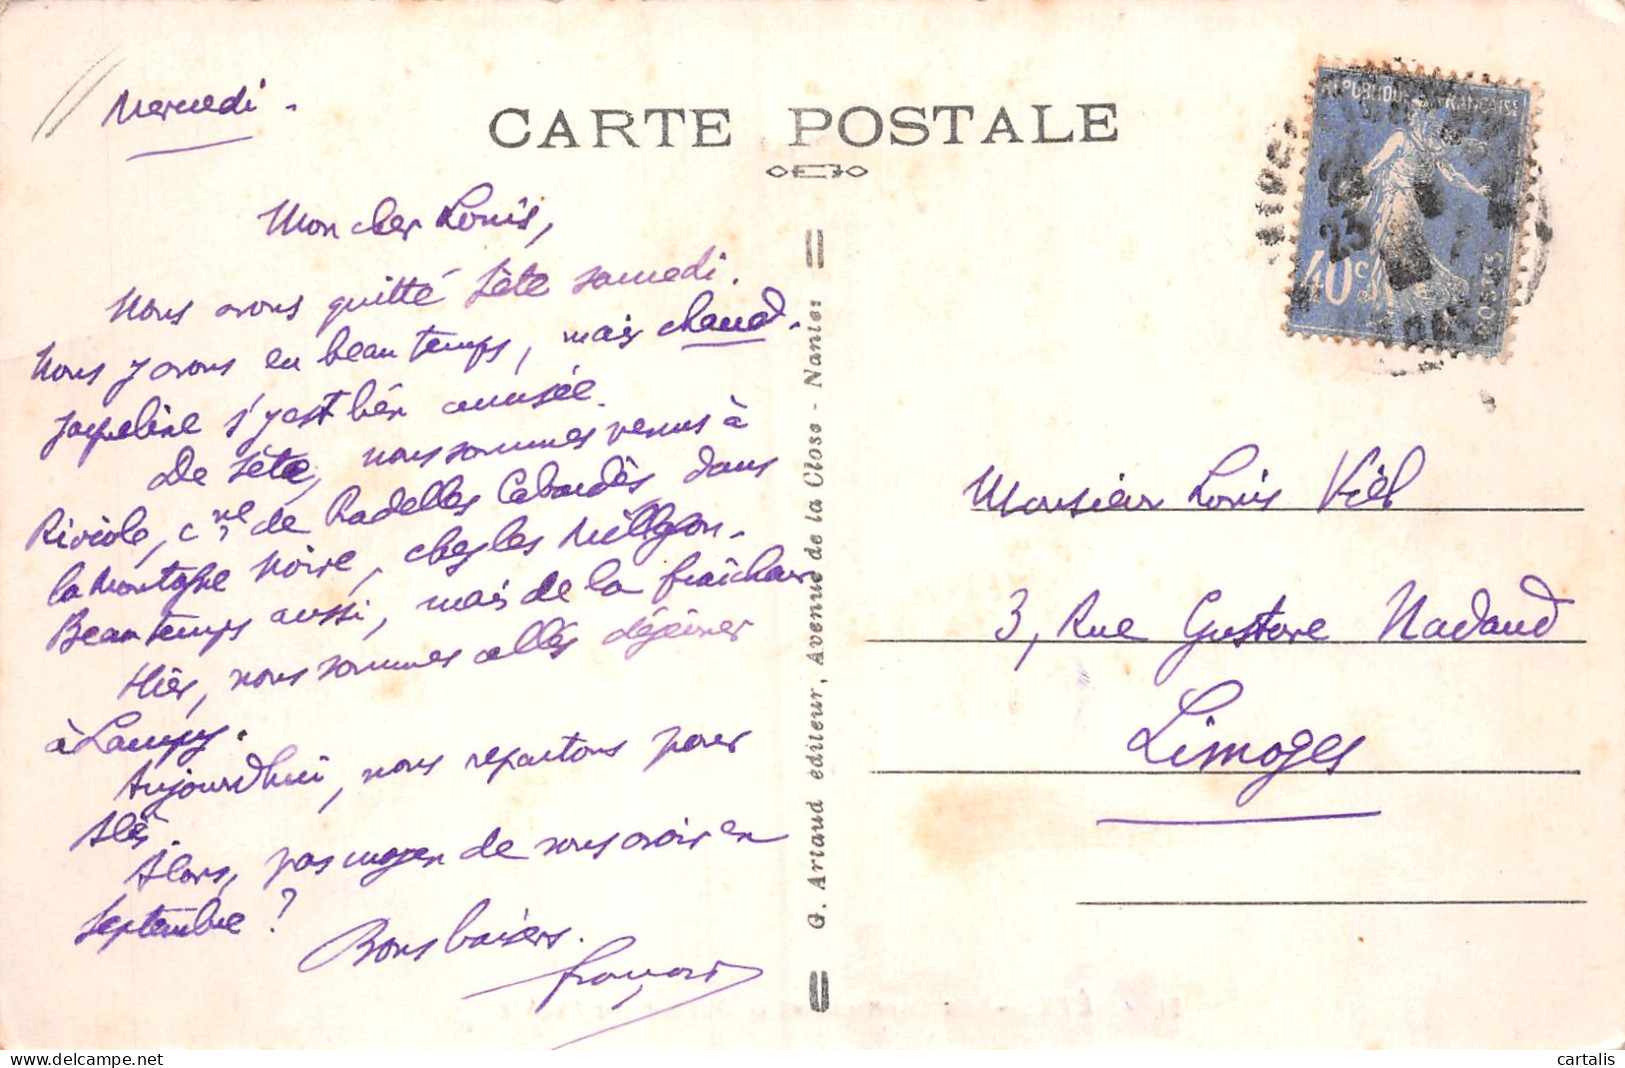 Mercredi.
CARTE POSTALE
Mon cher Louis,
Nous avons quitté Sète samedi.
Nous y avons eu beau temps, mais chaud.
Jacqueline s'y est bien amusée.
De Sète, nous sommes venus à
, cne de Cabardès dans
la Montagne Noire, chez les
Beau temps aussi, mais de la fraîcheur
Hier, nous sommes allés déjeuner
à Lampy.
Aujourd'hui, nous repartons pour
Alès.
Alors, pas moyen de vous avoir en
Septembre ?
Bons baisers.
G. Artaud éditeur, Avenue de la Close - Nantes
REPUBLIQUE FRANCAISE
23
40 c
POSTES
Monsieur Louis Viel
3, Rue Gustave Nadaud
Limoges
cartalis